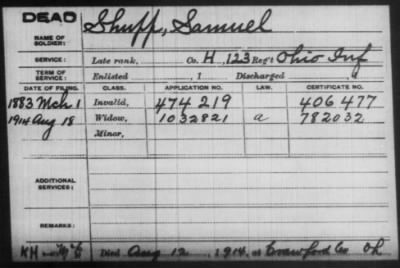 DEAD
NAME OF SOLDIER: Shupp, Samuel
SERVICE: Late rank, Co. H, 123 Reg't Ohio Inf
TERM OF SERVICE: Enlisted , 1 Discharged , 1
DATE OF FILING. CLASS. APPLICATION NO. LAW. CERTIFICATE NO.
1883 Mch 1 Invalid, 474 219 406 477
1914 Aug 18 Widow, 1032821 a 782032
Minor,
ADDITIONAL SERVICES:
REMARKS:
Died Aug 12, 1914, at Crawford Co Oh